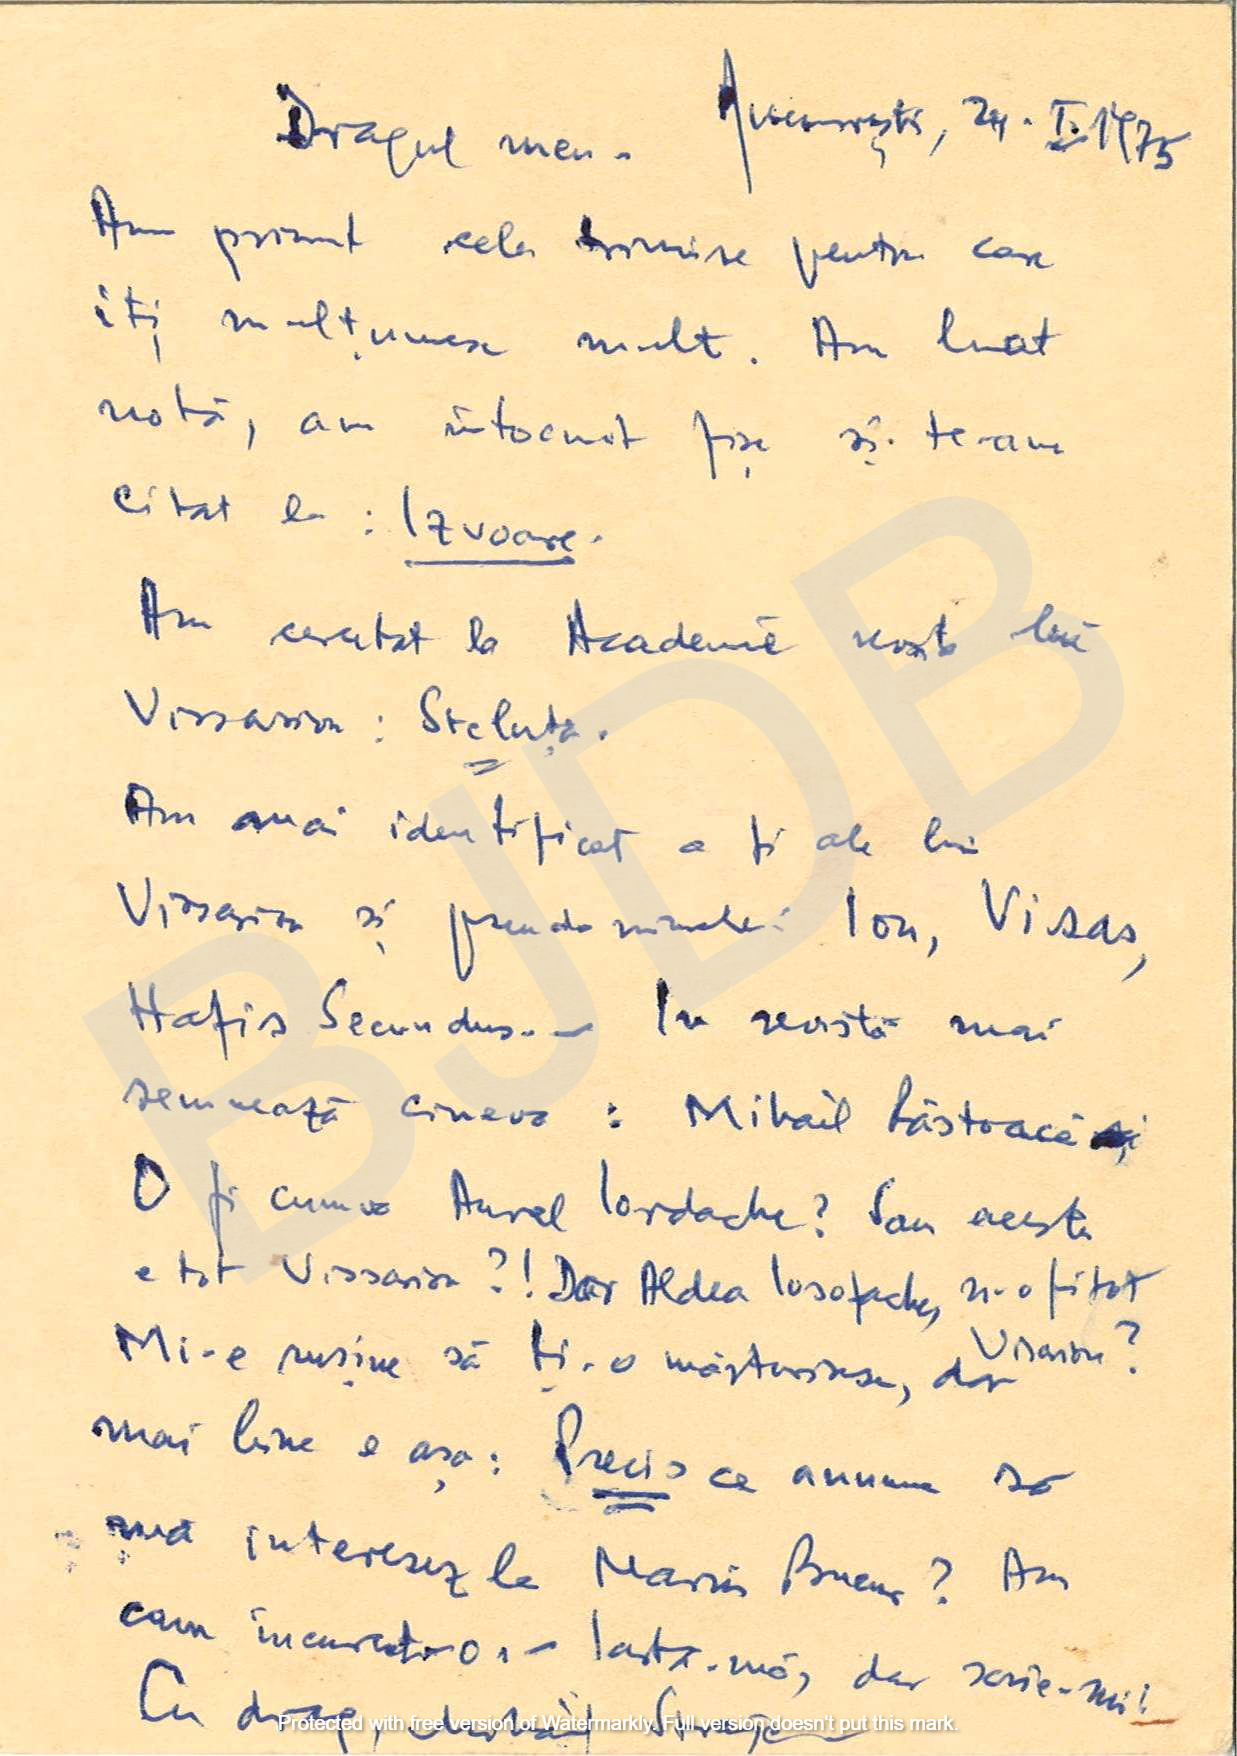 București, 24.I.1975
Dragul meu.
Am primit cele trimise pentru care
îți mulțumesc mult. Am luat
notă, am întocmit fișe și te-am
citat la: Izvoare.
Am cercetat la Academie revista lui
Vissarion: Steluța.
Am mai identificat a fi ale lui
Vissarion și pseudonimele: Ion, Visas,
Hafis Secundus.- In revistă mai
semnează cineva: Mihail
O fi cumva Aurel Iordache? Sau acesta
e tot Vissarion?! Dar Aldea Iosofache, n-o fi tot
Visarion?
Mi-e rușine să ți-o mărturisesc, dar
mai bine e așa: Precis ce anume să
mă interesez la Marin Bucur? Am
cam încurcat-o.- Iartă-mă, dar scrie-mi!
Cu drag, Mihail
BJDB
Protected with free version of Watermarkly. Full version doesn't put this mark.